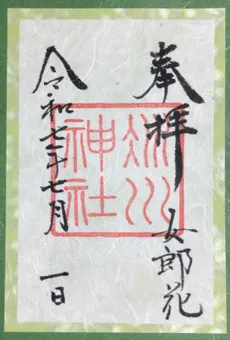 奉拝
女郎花
氷川
神社
令和七年七月
一日